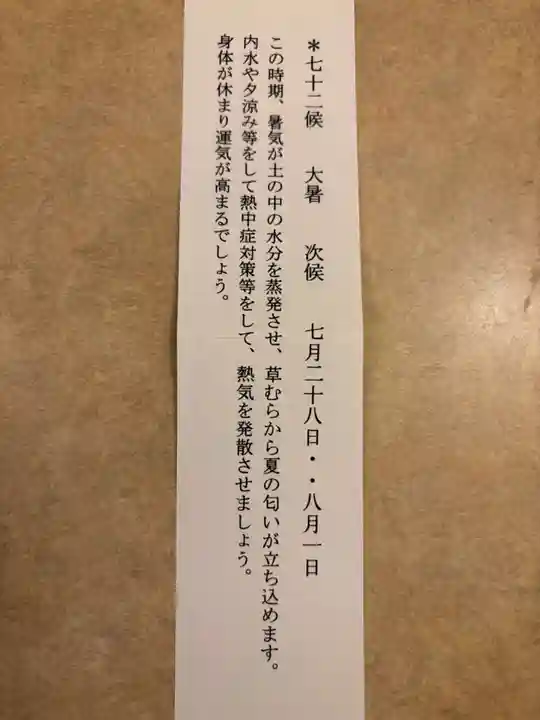 ＊七十二候　大暑　次候　七月二十八日・・八月一日
この時期、暑気が土の中の水分を蒸発させ、草むらから夏の匂いが立ち込めます。
内水や夕涼み等をして熱中症対策等をして、熱気を発散させましょう。
身体が休まり運気が高まるでしょう。